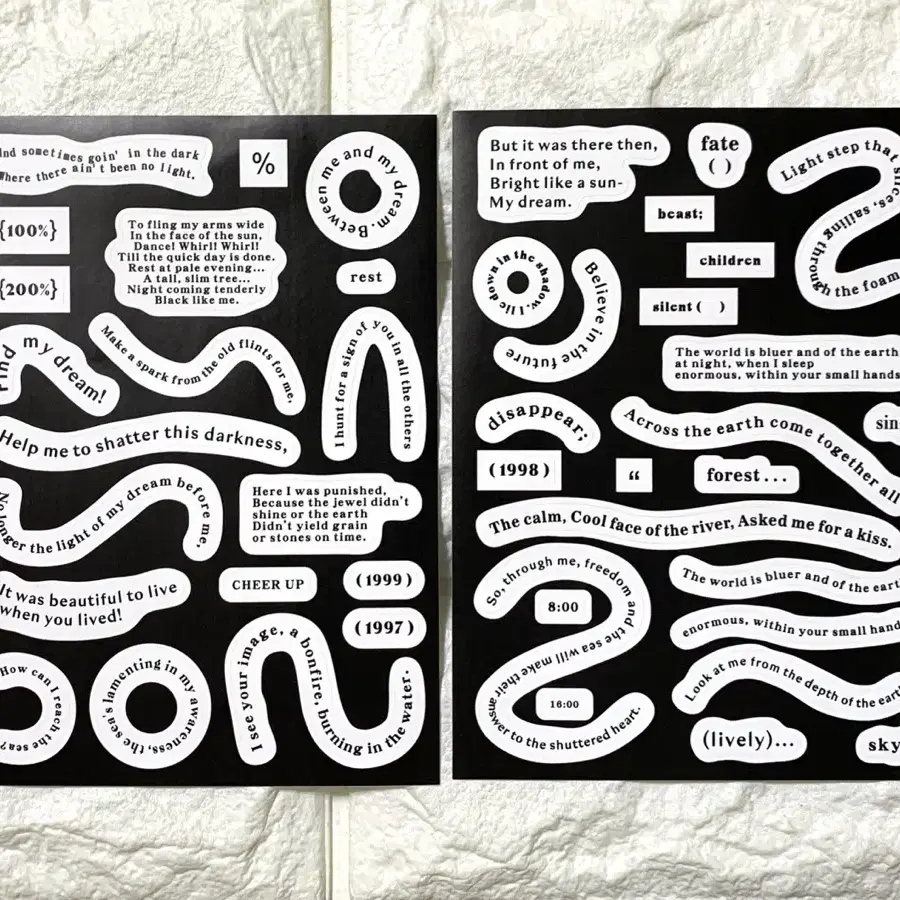 and sometimes goin' in the dark
Where there ain't been no light.
%
Between me and my dream.
{100%}
{200%}
To fling my arms wide
In the face of the sun,
Dance! Whirl! Whirl!
Till the quick day is done.
Rest at pale evening...
A tall, slim tree...
Night coming tenderly
Black like me.
rest
Find my dream!
Make a spark from the old flints for me.
I hunt for a sign of you in all the others
Help me to shatter this darkness,
No longer the light of my dream before me,
Here I was punished,
Because the jewel didn't
shine or the earth
Didn't yield grain
or stones on time.
It was beautiful to live
when you lived!
CHEER UP
(1999)
(1997)
How can I reach the sea?
the sea's lamenting in my awareness,
I see your image, a bonfire, burning in the water.
But it was there then,
In front of me,
Bright like a sun-
My dream.
fate
( )
Light step that slices, sailing through the foam
beast;
children
silent( )
down in the shadow. I lie
Believe in the future
The world is bluer and of the earth
at night, when I sleep
enormous, within your small hands
disappear;
Across the earth come together all
sin
(1998)
“
forest...
The calm, Cool face of the river, Asked me for a kiss.
So, through me, freedom and the sea will make their answer to the shuttered heart.
8:00
16:00
The world is bluer and of the earth
enormous, within your small hand
Look at me from the depth of the earth
(lively)...
sky